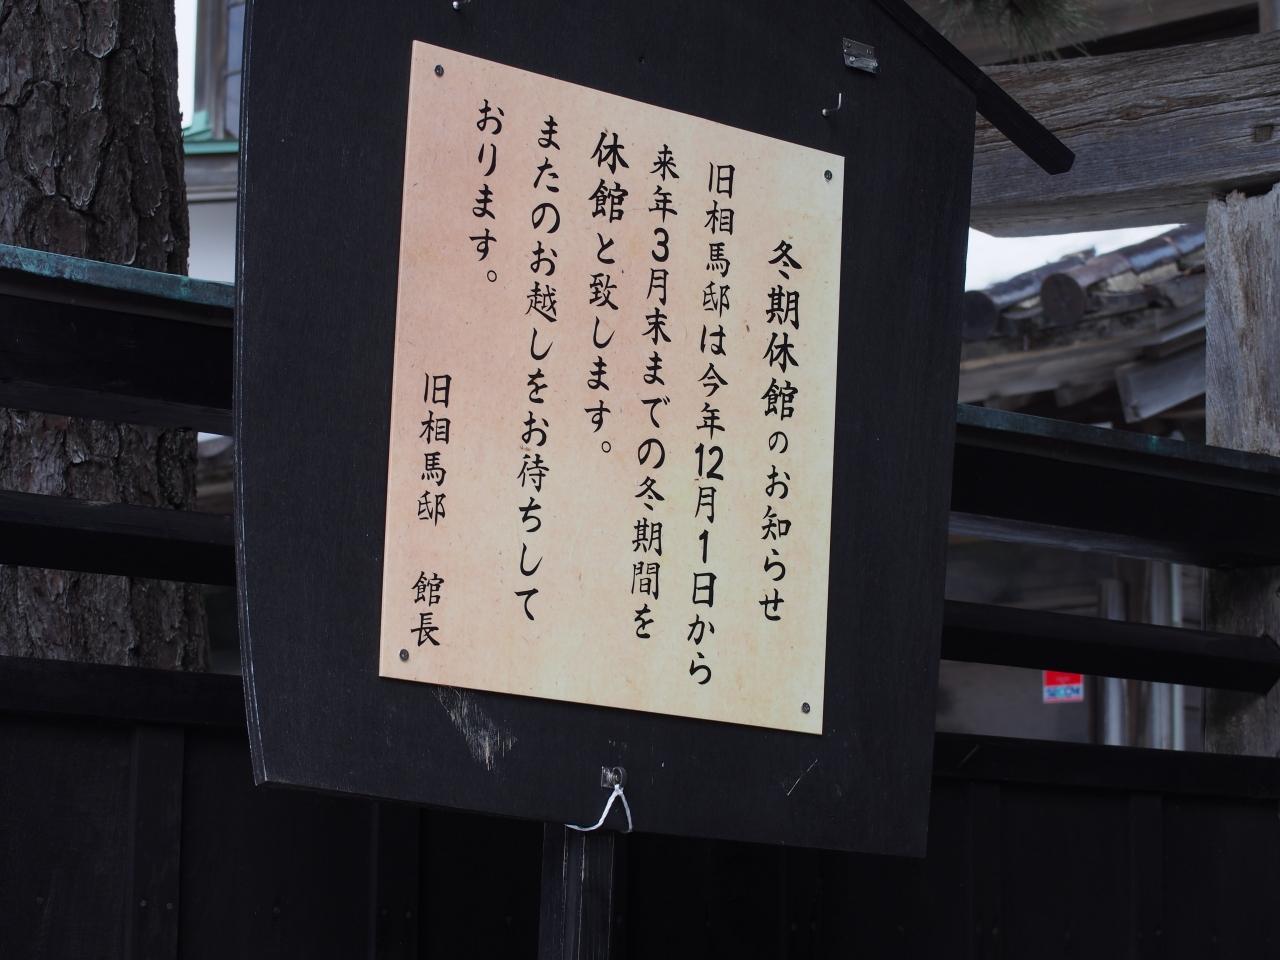 冬期休館のお知らせ
旧相馬邸は今年12月1日から
来年3月末までの冬期間を
休館と致します。
またのお越しをお待ちして
おります。
旧相馬邸 館長
SECOM